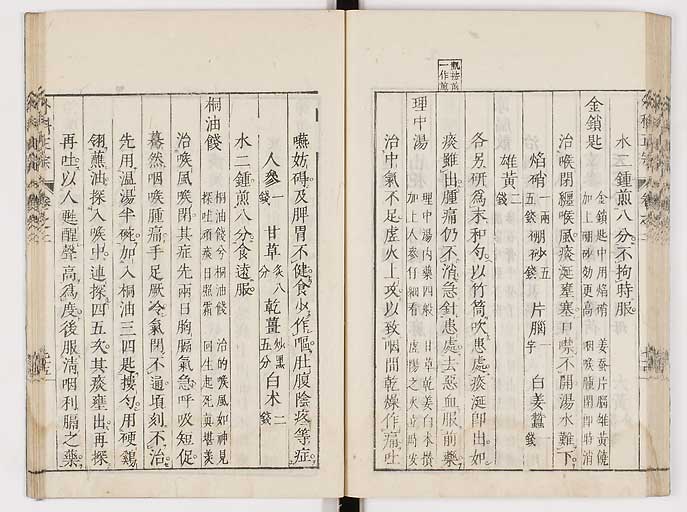 水二鍾煎八分不拘時服
金鎖匙　金鎖匙中用焰硝　姜蚕片腦雄黃饒
加上硼砂効更高　咽喉腫閉即時消
治喉閉纏喉風痰涎壅塞口噤不開湯水難下
焰硝一兩五錢　硼砂五錢　片腦一字　白姜蠶一錢
雄黃二錢
各另研為末和勻以竹筒吹患處痰涎即出如
痰雖出腫痛仍不消急針患處去惡血服前藥
理中湯　理中湯内藥四般　甘草乾姜白朮攢
加上人參仔細看　虛陽之火立時安
治中氣不足虛火上攻以致咽間乾燥作痛吐
嚥妨碍及脾胃不健食少作嘔肚腹陰疼等症
人參一錢　甘草炙八分　乾薑炒黑五分　白朮二錢
水二鍾煎八分食遠服
桐油餞　桐油餞兮桐油餞　治的喉風如神見
探吐頑痰日照霜　回生起死真堪羨
治喉風喉閉其症先兩日胸膈氣急呼吸短促
驀然咽喉腫痛手足厥冷氣閉不通頃刻不治
先用溫湯半碗加入桐油三四匙攪勻用硬鷄
翎蘸油探入喉中連探四五次其痰壅出再探
再吐以人甦醒聲高為度後服清咽利膈之藥